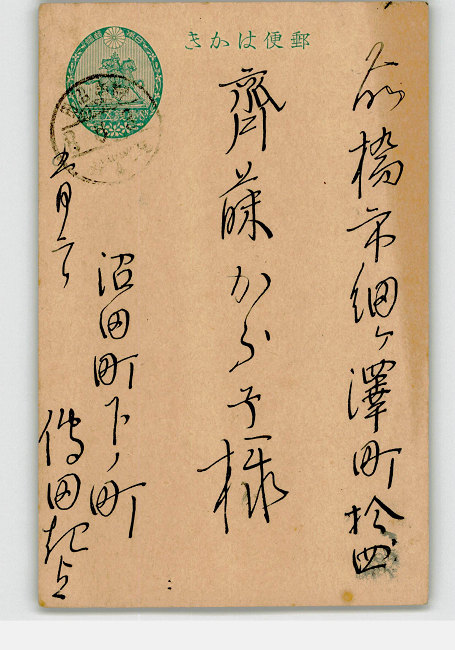 きかは便郵
前橋市細ヶ澤町拾四
齊藤かう子様
五月六日
沼田町下ノ町